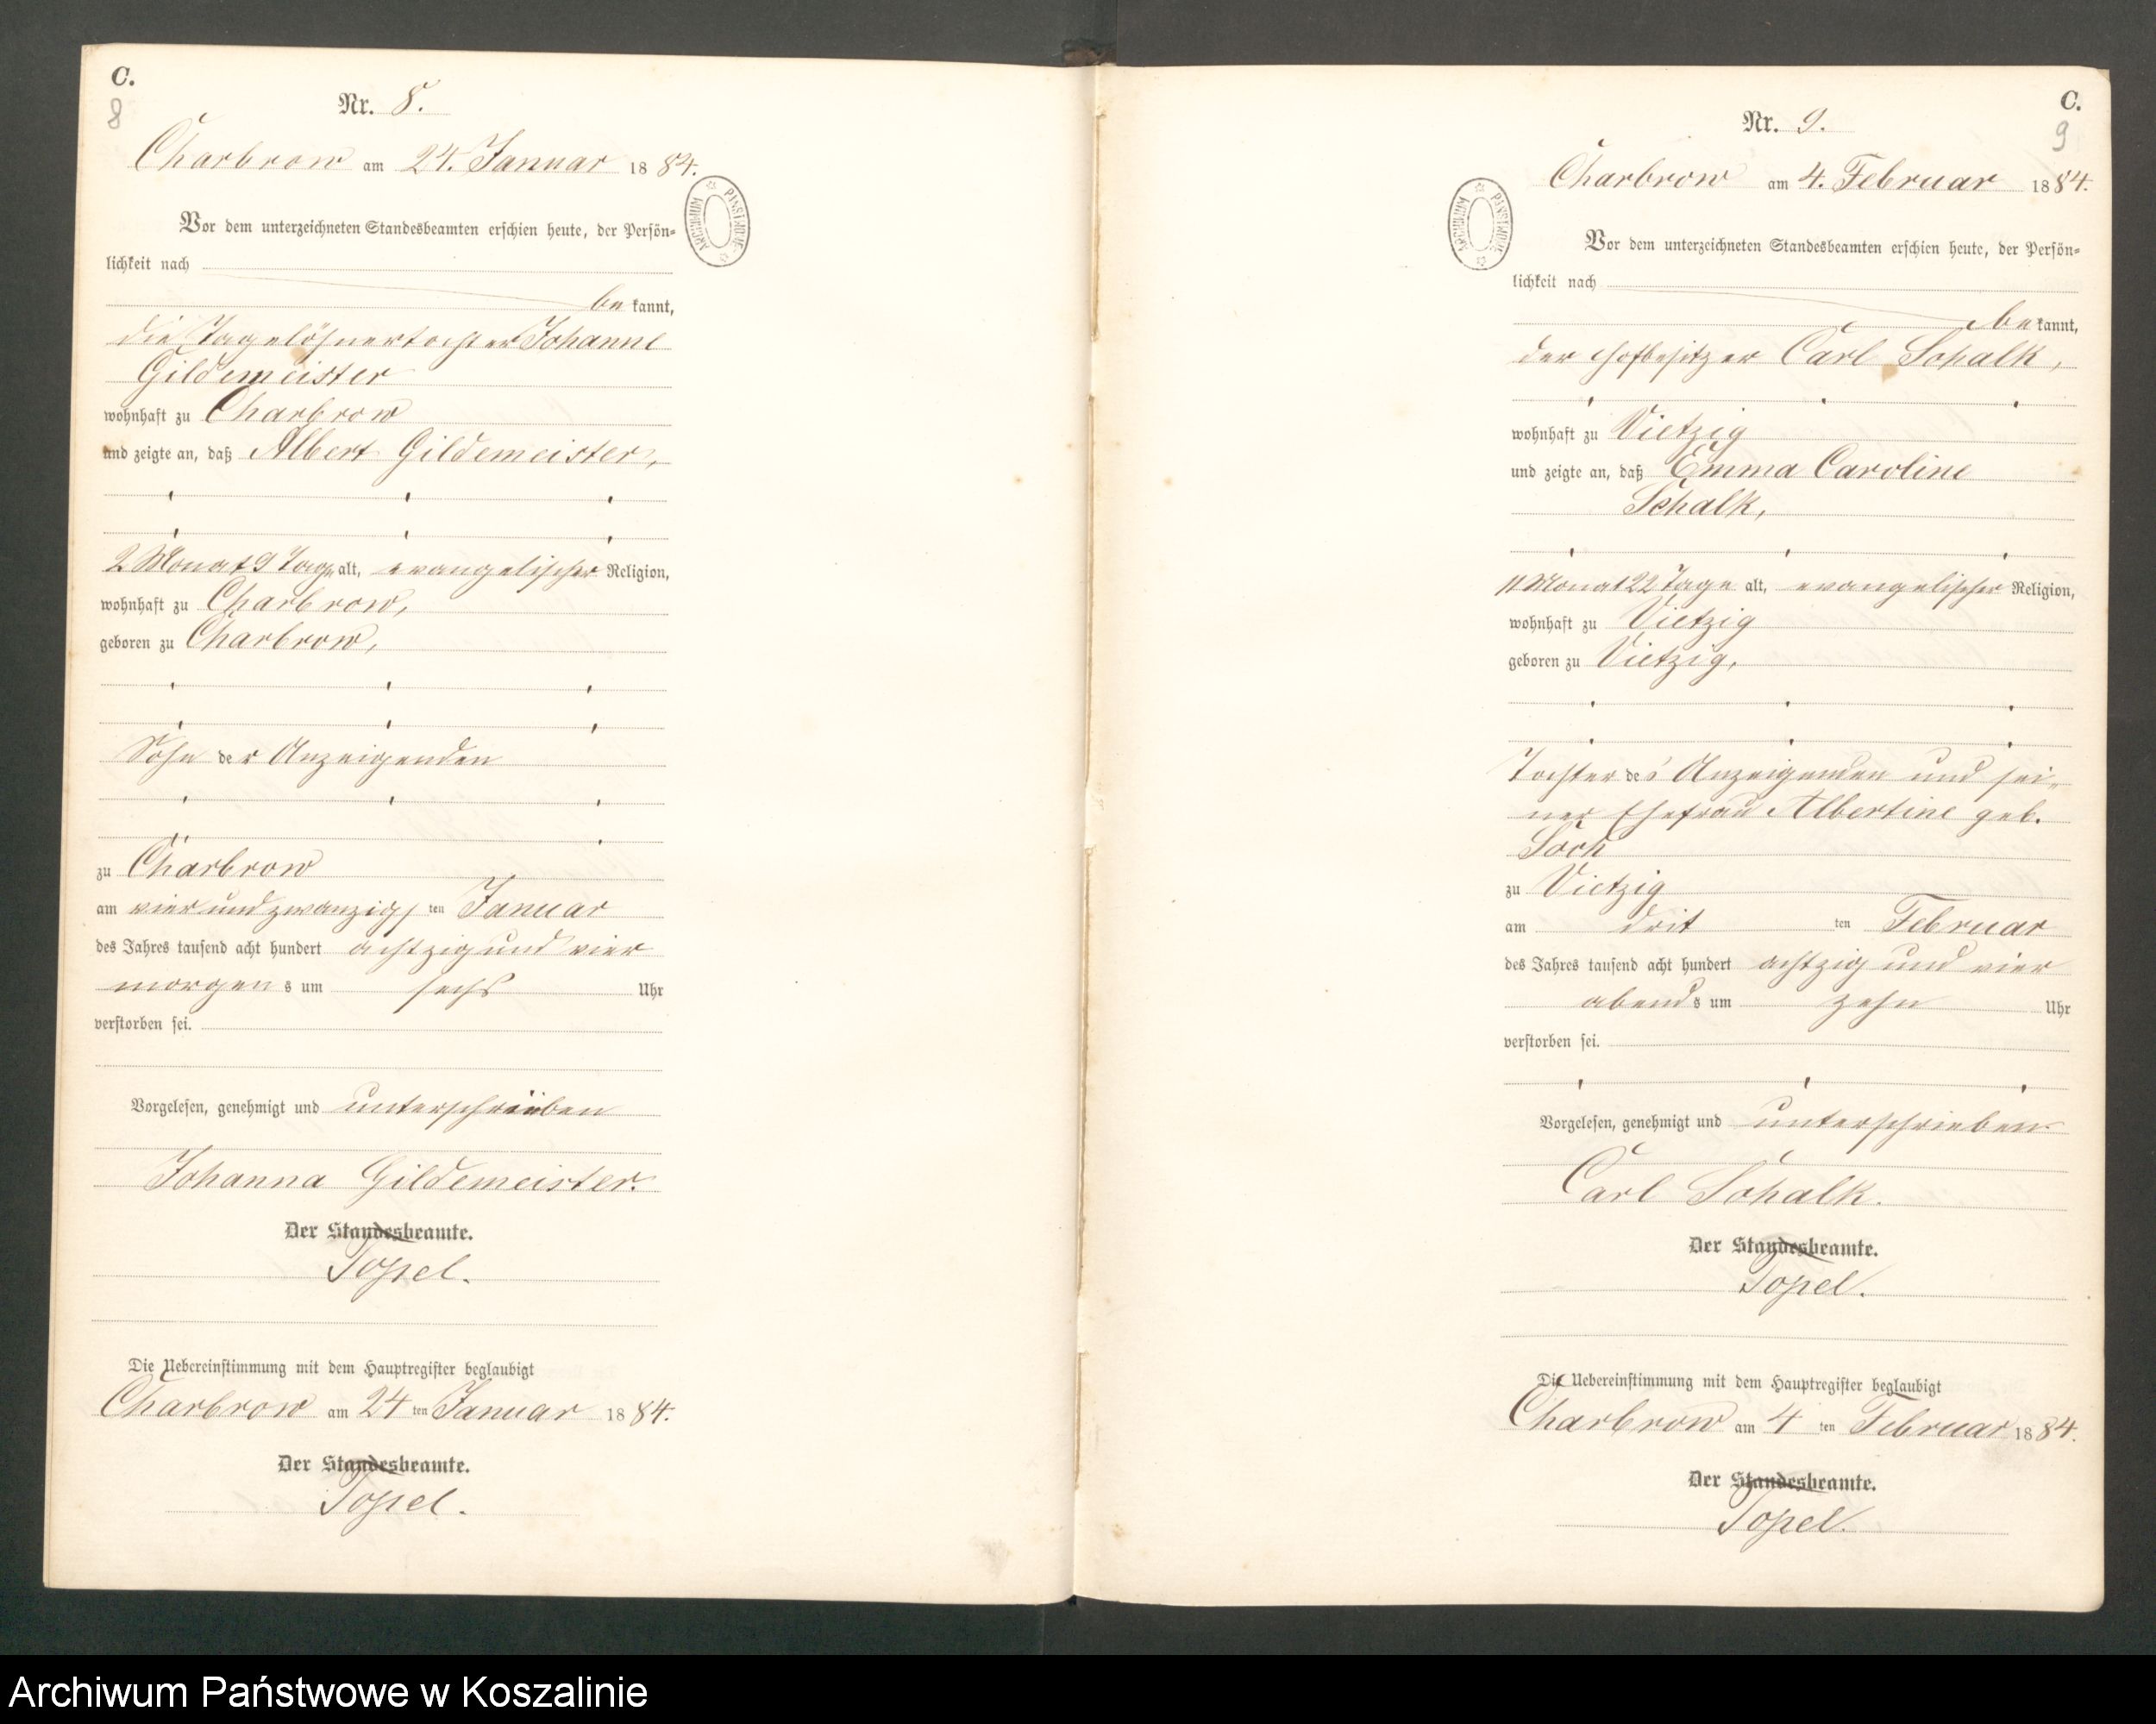 C.
8
Nr. 8.
Charbrow am 24. Januar 1884.
Vor dem unterzeichneten Standesbeamten erschien heute, der Persön=
lichkeit nach
bekannt,
die Tagelöhnertochter Johanne
Gildemeister
wohnhaft zu Charbrow
und zeigte an, daß Albert Gildemeister,
2 Monat 9 Tage alt, evangelischer Religion,
wohnhaft zu Charbrow,
geboren zu Charbrow,
Sohn der Anzeigenden
zu Charbrow
am vier und zwanzigsten Januar
des Jahres tausend acht hundert achtzig und vier
morgens um sechs Uhr
verstorben sei.
Vorgelesen, genehmigt und unterschrieben
Johanna Gildemeister.
Der Standesbeamte.
Topel.
Die Uebereinstimmung mit dem Hauptregister beglaubigt
Charbrow am 24ten Januar 1884.
Der Standesbeamte.
Topel.
ARCHIWUM PAŃSTWOWE
C.
9
Nr. 9.
Charbrow am 4. Februar 1884.
Vor dem unterzeichneten Standesbeamten erschien heute, der Persön=
lichkeit nach
bekannt,
der Hofbesitzer Carl Schalk,
wohnhaft zu Vietzig
und zeigte an, daß Emma Caroline
Schalk,
11 Monat 22 Tage alt, evangelischer Religion,
wohnhaft zu Vietzig
geboren zu Vietzig,
Tochter des Anzeigenden und sei„
ner Ehefrau Albertine geb.
zu Vietzig
am dritten Februar
des Jahres tausend acht hundert achtzig und vier
abends um zehn Uhr
verstorben sei.
Vorgelesen, genehmigt und unterschrieben
Carl Schalk.
Der Standesbeamte.
Topel.
Die Uebereinstimmung mit dem Hauptregister beglaubigt
Charbrow am 4ten Februar 1884.
Der Standesbeamte.
Topel.
ARCHIWUM PAŃSTWOWE
Archiwum Państwowe w Koszalinie